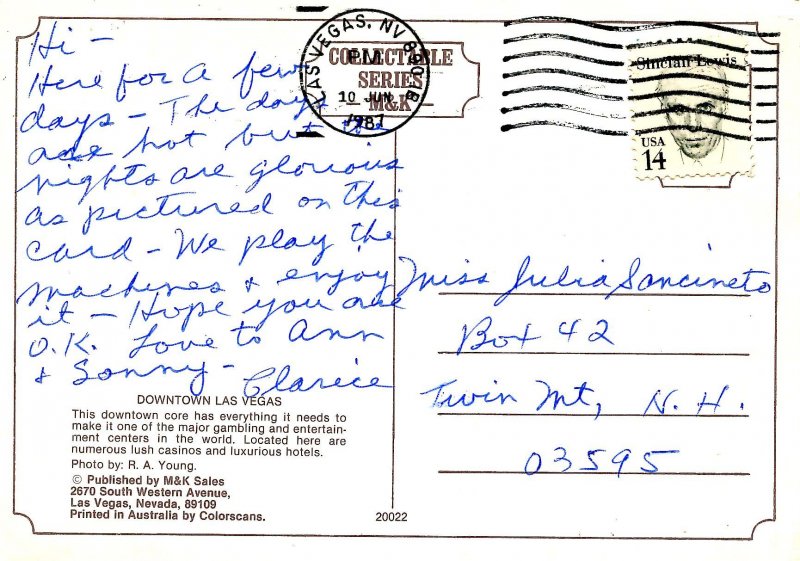 Hi -
Here for a few
days - The days
are hot but the
nights are glorious
as pictured on this
card - We play the
machines & enjoy
it - Hope you are
O.K. Love to Ann
& Sonny -
Clarice
DOWNTOWN LAS VEGAS
This downtown core has everything it needs to
make it one of the major gambling and entertain-
ment centers in the world. Located here are
numerous lush casinos and luxurious hotels.
Photo by: R. A. Young.
© Published by M&K Sales
2670 South Western Avenue,
Las Vegas, Nevada, 89109
Printed in Australia by Colorscans.
20022
COLLECTABLE
SERIES
M&K
LAS VEGAS, NV
PM
10 JUN
1987
Sinclair Lewis
USA
14
Miss Julia Sancineto
Box 42
Twin Mt, N. H.
03595